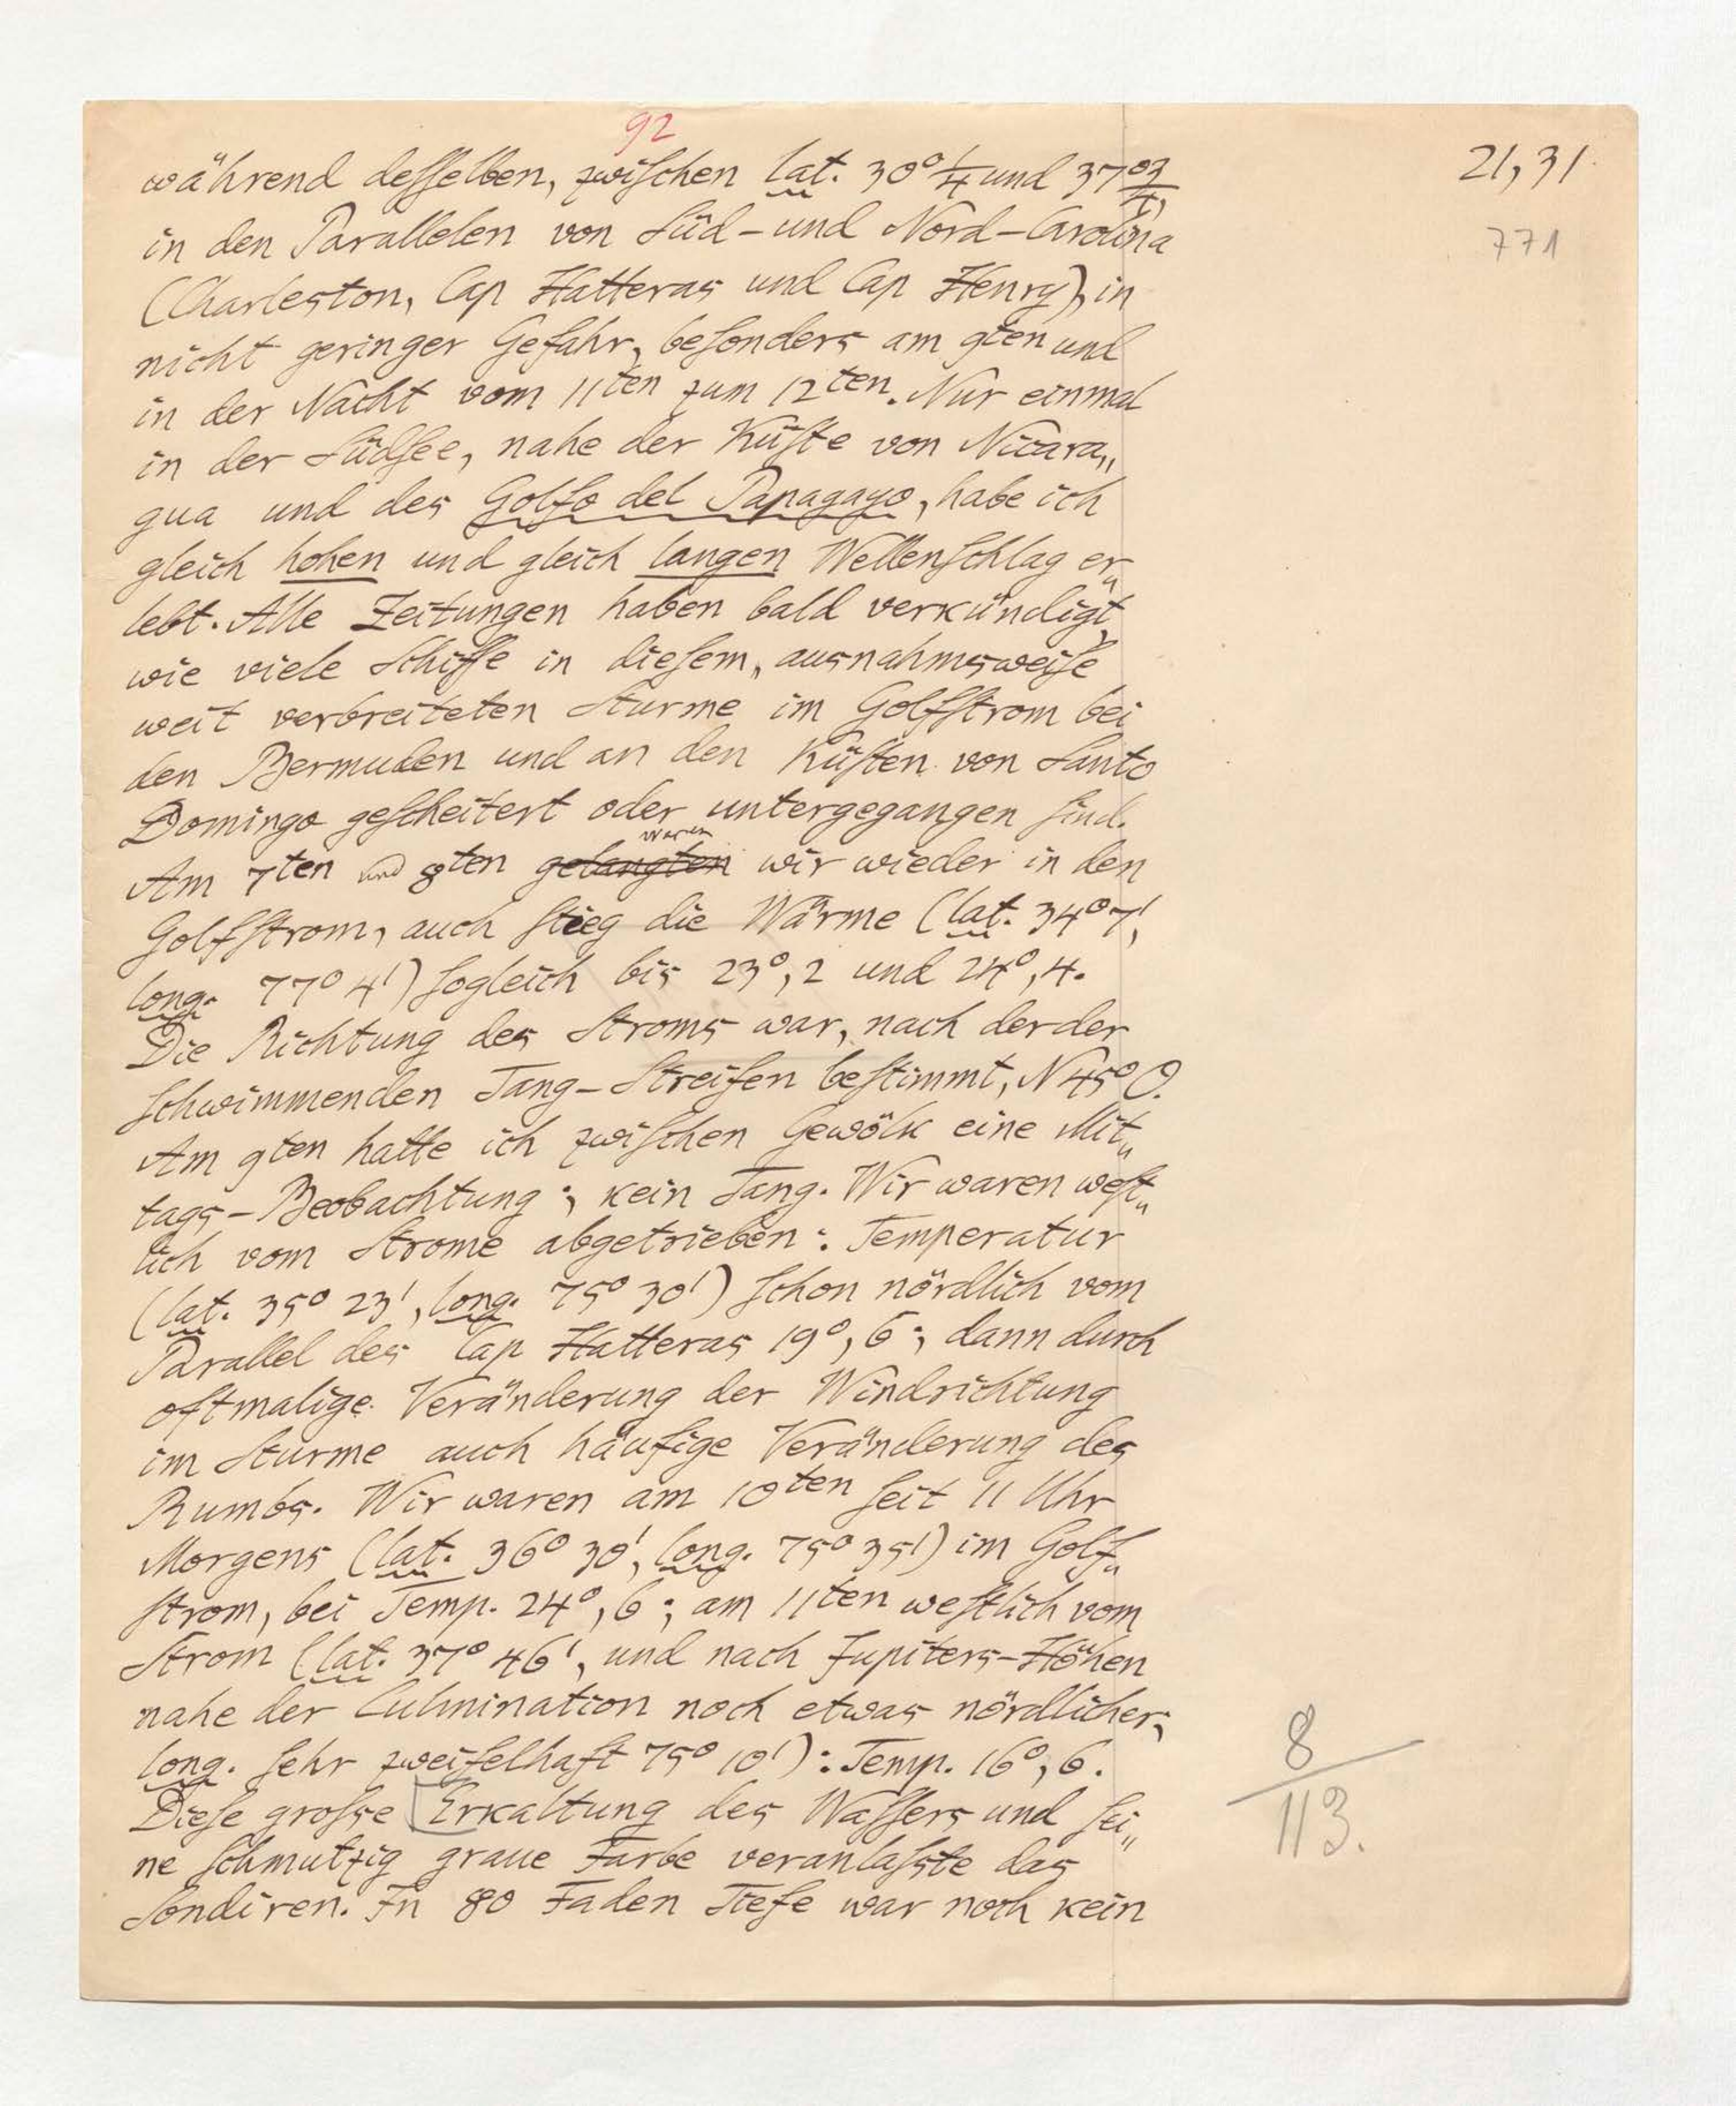 92
21,31.
771
während deſſelben, zwiſchen lat. 30° 1/4 und 37° 3/4,
in den Parallelen von Süd- und Nord-Carolina
(Charleston, Cap Hatteras und Cap Henry), in
nicht geringer Gefahr, beſonders am 9ten und
in der Nacht vom 11ten zum 12ten. Nur einmal
in der Südſee, nahe der Küſte von Nicara„
gua und des Golfo del Papagayo, habe ich
gleich hohen und gleich langen Wellenſchlag er„
lebt. Alle Zeitungen haben bald verkündigt,
wie viele Schiffe in dieſem, ausnahmsweiſe
weit verbreiteten Sturme im Golfſtrom bei
den Bermuden und an den Küſten von Santo
Domingo geſcheitert oder untergegangen ſind.
Am 7ten und 8ten gelangten waren wir wieder in den
Golfſtrom, auch ſtieg die Wärme (lat. 34° 7',
long. 77° 4') ſogleich bis 23°,2 und 24°,4.
Die Richtung des Stroms war, nach der der
ſchwimmenden Tang-Streifen beſtimmt, N 45° O.
Am 9ten hatte ich zwiſchen Gewölk eine Mit„
tags-Beobachtung; kein Tang. Wir waren weſt„
lich vom Strome abgetrieben: Temperatur
(lat. 35° 23', long. 75° 30') ſchon nördlich vom
Parallel des Cap Hatteras 19°,6; dann durch
oftmalige Veränderung der Windrichtung
im Sturme auch häufige Veränderung des
Rumbs. Wir waren am 10ten ſeit 11 Uhr
Morgens (lat. 36° 30', long. 75° 35') im Golf„
ſtrom, bei Temp. 24°,6; am 11ten weſtlich vom
Strom (lat. 37° 46', und nach Jupiters-Höhen
nahe der Culmination noch etwas nördlicher;
long. ſehr zweifelhaft 75° 10'): Temp. 16°,6.
Dieſe groſse [Erkaltung des Waſſers und ſei„
ne ſchmutzig graue Farbe veranlaſste das
Sondiren. In 80 Faden Tiefe war noch kein
8
113.